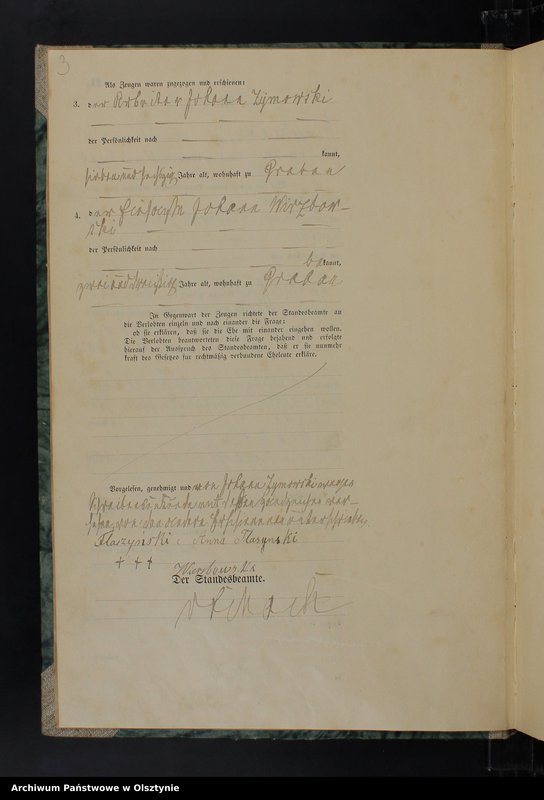 3
Als Zeugen waren zugezogen und erschienen:
3. der Arbeiter Johann Zymowski
der Persönlichkeit nach
kannt,
sieben und sechzig Jahre alt, wohnhaft zu Graban
4. der Johann Wirzbow-
ski
der Persönlichkeit nach
bekannt,
zweiunddreißig Jahre alt, wohnhaft zu Graban
In Gegenwart der Zeugen richtete der Standesbeamte an
die Verlobten einzeln und nach einander die Frage:
ob sie erklären, daß sie die Ehe mit einander eingehen wollen.
Die Verlobten beantworteten diese Frage bejahend und erfolgte
hierauf der Ausspruch des Standesbeamten, daß er sie nunmehr
kraft des Gesetzes für rechtmäßig verbundene Eheleute erkläre.
Vorgelesen, genehmigt und von Johann Zymowski wegen
Schreibensunkunde mit dessen Handzeichen ver-
sehen, von den andern Erschienenen unterschrieben
Flaszynski Anna
+ + +
Der Standesbeamte.
Archiwum Państwowe w Olsztynie